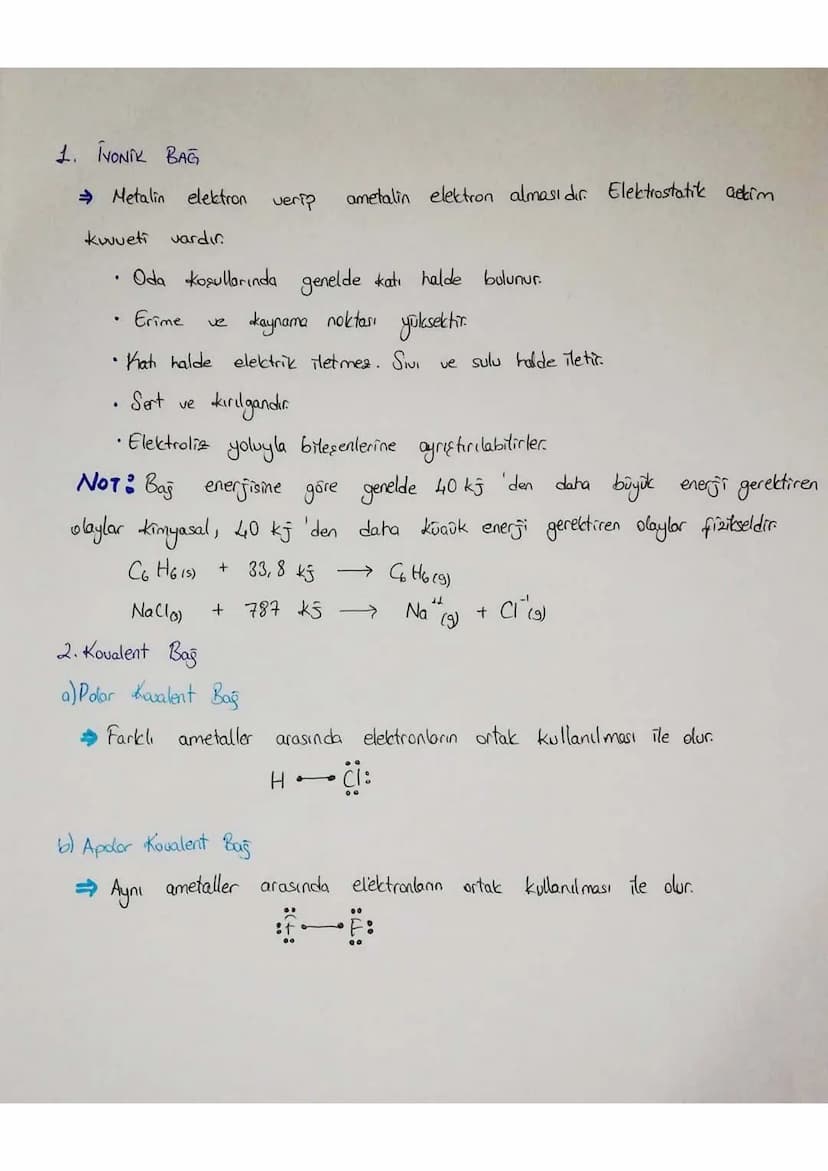 1. İYONİK BAĞ
⇒ Metalin elektron verip ametalin elektron almasıdır. Elektrostatik çekim
kuvveti vardır.
• Oda koşullarında genelde katı halde bulunur.
• Erime ve kaynama noktası yüksektir.
• Katı halde elektrik iletmez. Sıvı ve sulu halde iletir.
• Sert ve kırılgandır.
• Elektroliz yoluyla bileşenlerine ayrıştırılabilirler.
NOT: Bağ enerjisine göre genelde 40 kj 'den daha büyük enerji gerektiren
olaylar kimyasal, 40 kj 'den daha küçük enerji gerektiren olaylar fizikseldir.
C6 H6(s) + 33,8 kj → C6 H6(g)
NaCl(s) + 787 kj → Na⁺¹(g) + Cl⁻¹(g)
2. Kovalent Bağ
a) Polar Kovalent Bağ
⇒ Farklı ametaller arasında elektronların ortak kullanılması ile olur.
H — Cl
b) Apolar Kovalent Bağ
⇒ Aynı ametaller arasında elektronların ortak kullanılması ile olur.
F — F